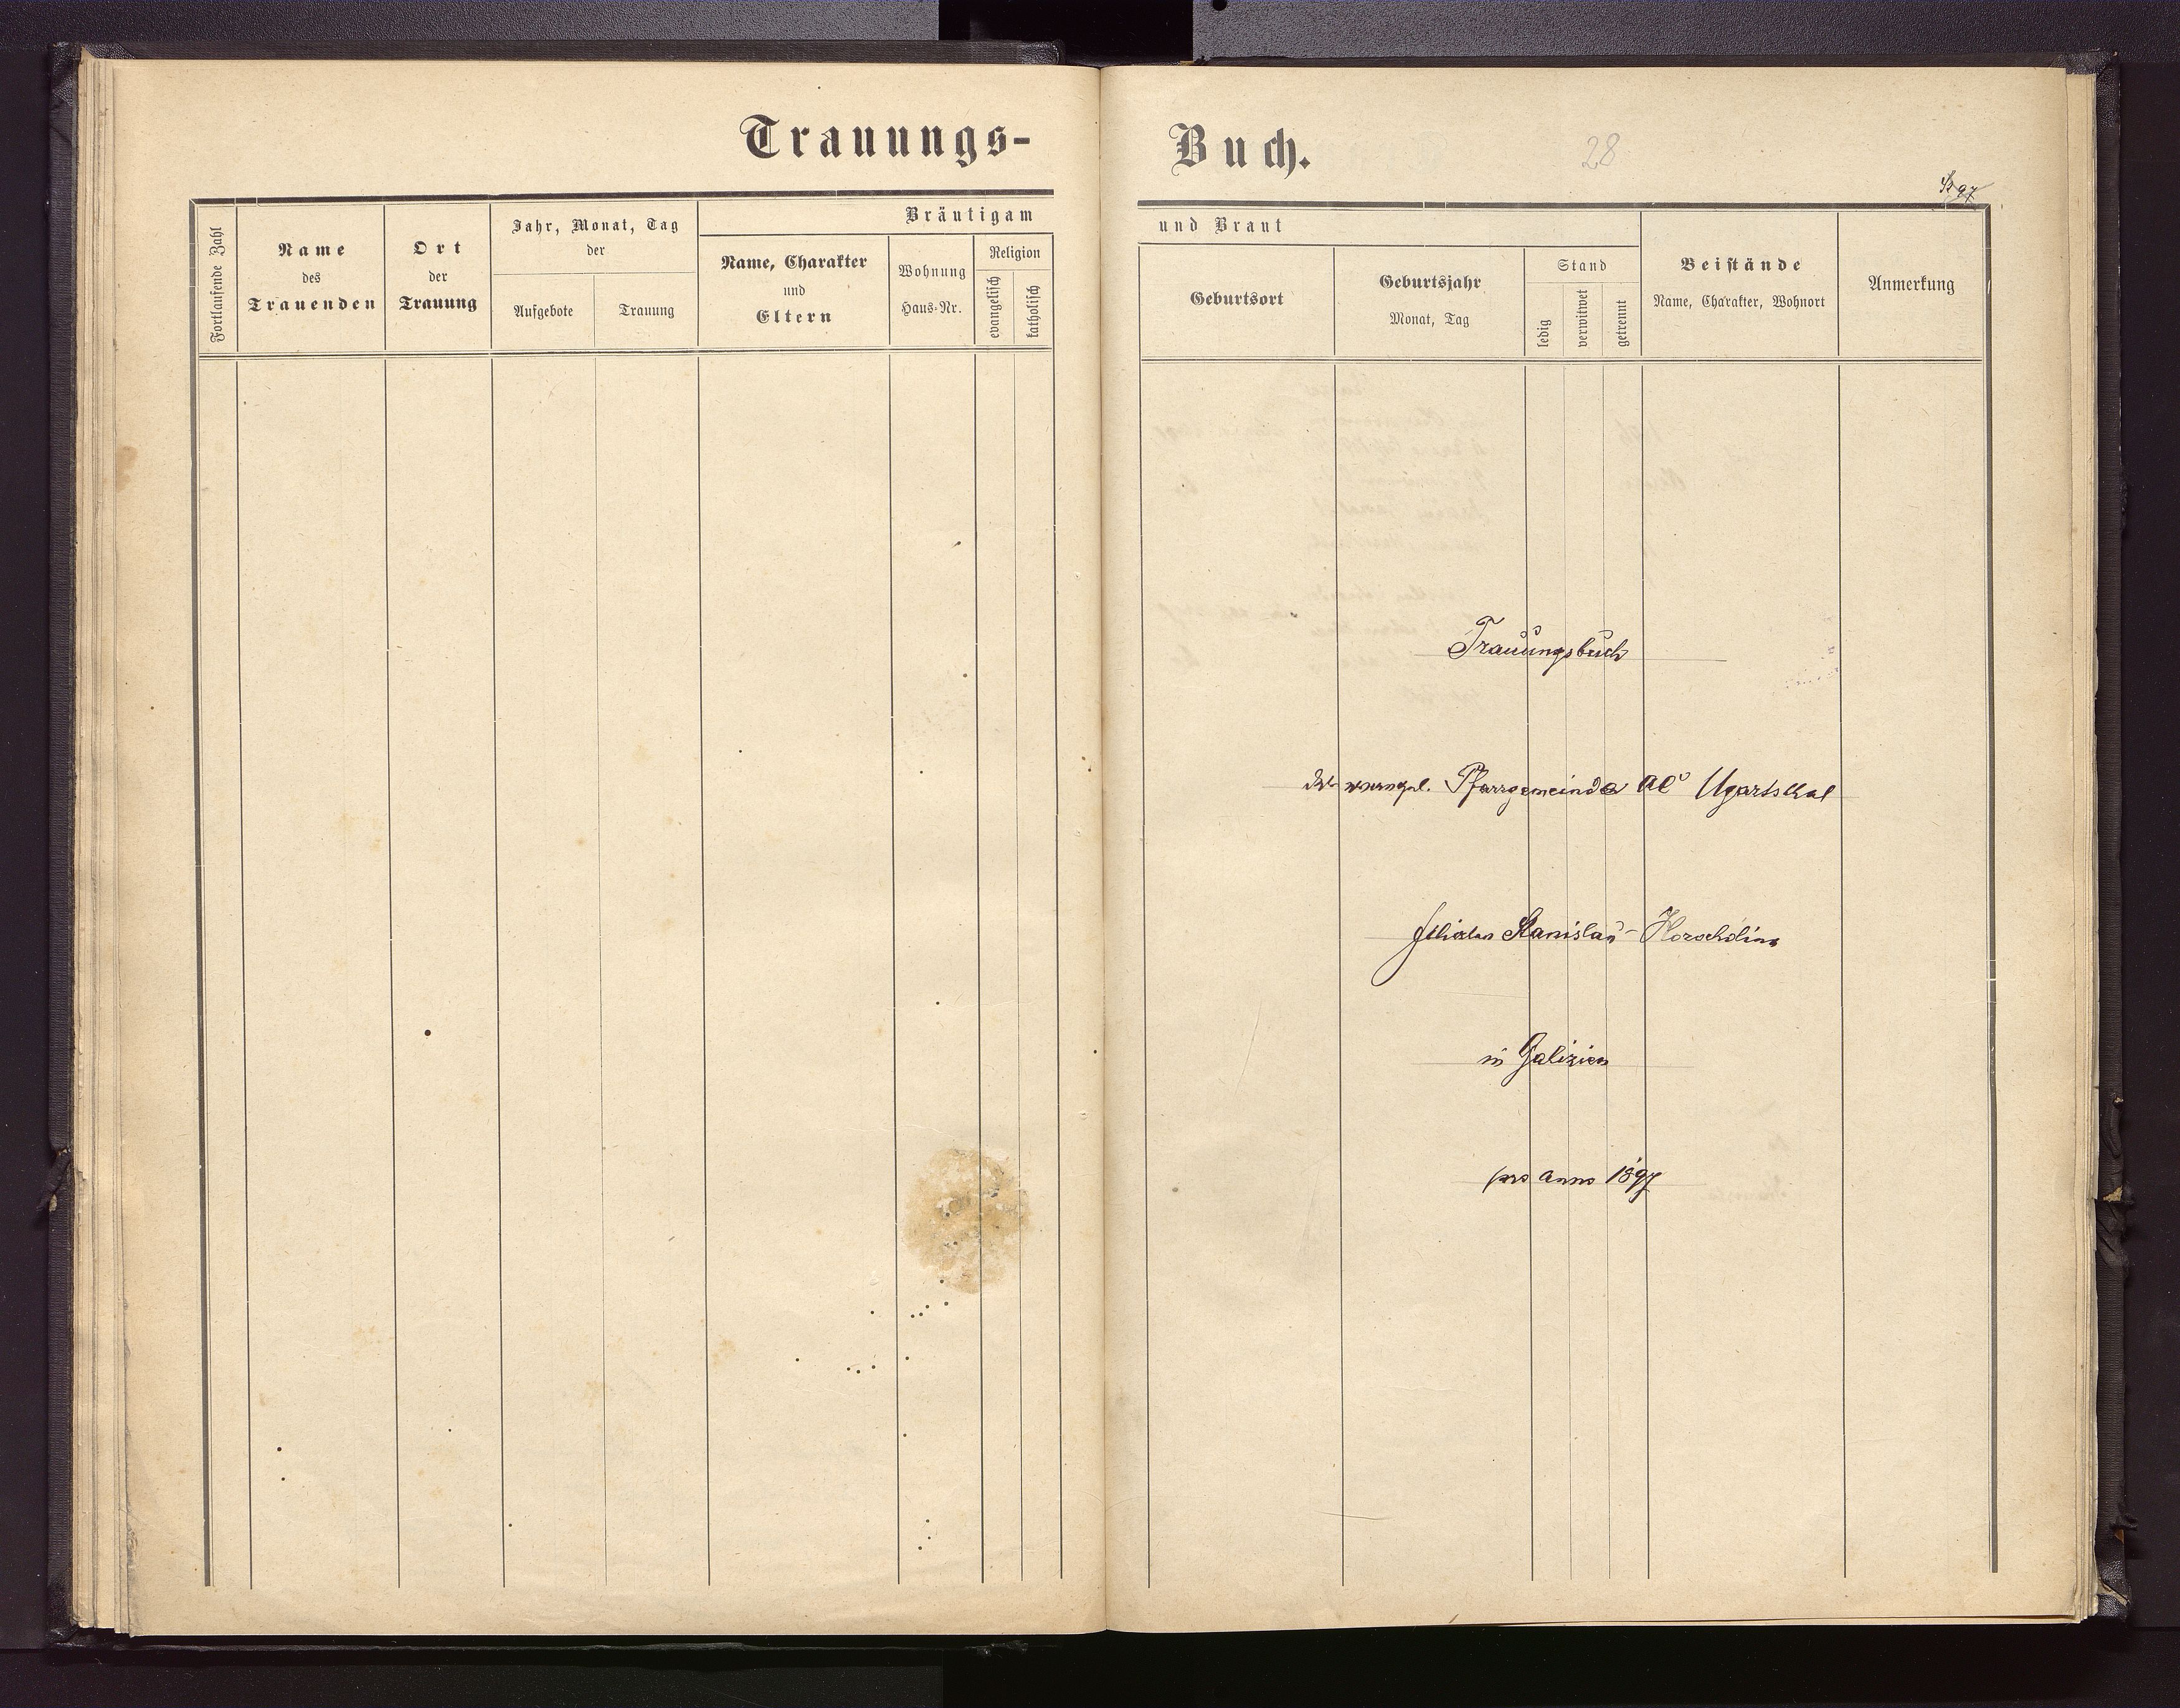 Trauungs-
Fortlaufende Zahl
Name
des
Trauenden
Ort
der
Trauung
Jahr, Monat, Tag
der
Aufgebote
Trauung
Bräutigam
Name, Charakter
und
Eltern
Wohnung
Haus-Nr.
Religion
evangelisch
katholisch
Buch.
28
und Braut
Geburtsort
Geburtsjahr
Monat, Tag
Stand
ledig
verwitwet
getrennt
Beistände
Name, Charakter, Wohnort
Anmerkung
Trauungsbuch
der evangel. Pfarrgemeinde Ugartsthal
Filialen Stanislau - Horocholina
in Galizien
pro anno 1897